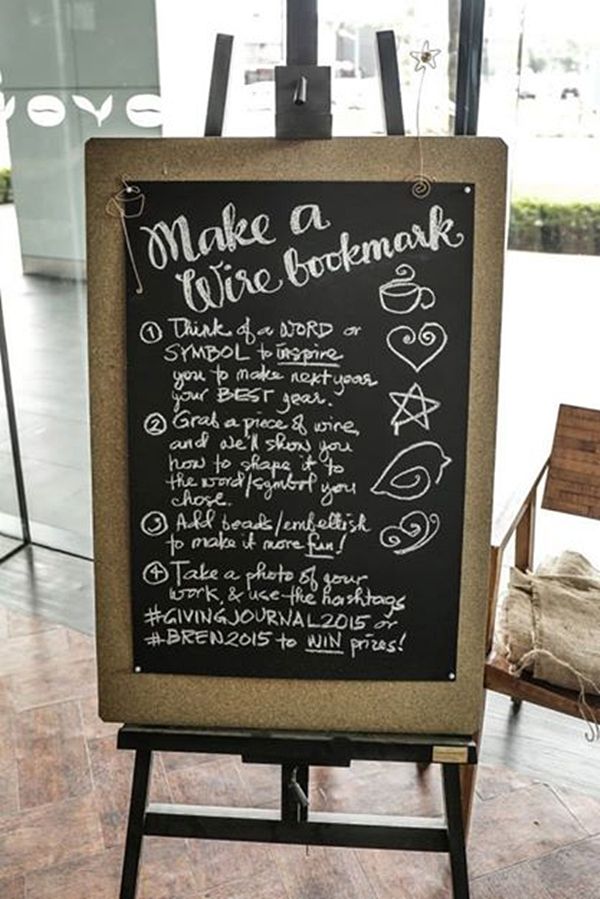 Make a
Wire bookmark
1 Think of a WORD or
SYMBOL to inspire
you to make next year
your BEST year.
2 Grab a piece of wire,
and we'll show you
how to shape it to
the word/symbol you
chose.
3 Add beads/embellish
to make it more fun!
4 Take a photo of your
work, & use the hashtags
#GIVINGJOURNAL2015 or
#BREW2015 to WIN prizes!